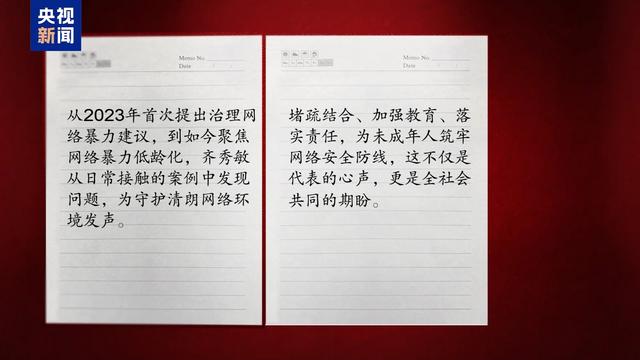 央视
新闻
Memo No.
Date
从2023年首次提出治理网
络暴力建议，到如今聚焦
网络暴力低龄化，齐秀敏
从日常接触的案例中发现
问题，为守护清朗网络环
境发声。
Memo No.
Date
堵疏结合、加强教育、落
实责任，为未成年人筑牢
网络安全防线，这不仅是
代表的心声，更是全社会
共同的期盼。